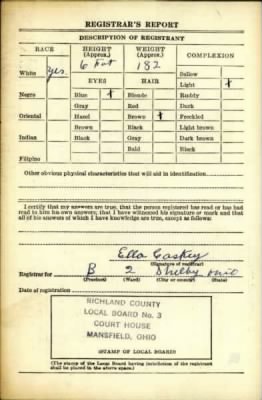 REGISTRAR'S REPORT
DESCRIPTION OF REGISTRANT
RACE HEIGHT (Approx.) WEIGHT (Approx.) COMPLEXION
6 foot 182
White yes. Sallow
EYES HAIR Light +
Negro Blue + Blonde Ruddy
Gray Red Dark
Oriental Hazel Brown + Freckled
Brown Black Light brown
Indian Black Gray Dark brown
Bald Black
Filipino
Other obvious physical characteristics that will aid in identification
I certify that my answers are true, that the person registered has read or has had read to him his own answers; that I have witnessed his signature or mark and that all of his answers of which I have knowledge are true, except as follows:
Ella Caskey
(Signature of registrar)
Registrar for B 2 Shelby Ohio
(Precinct) (Ward) (City or county) (State)
Date of registration
RICHLAND COUNTY
LOCAL BOARD No. 3
COURT HOUSE
MANSFIELD, OHIO
(STAMP OF LOCAL BOARD)
(The stamp of the Local Board having jurisdiction of the registrant shall be placed in the above space.)